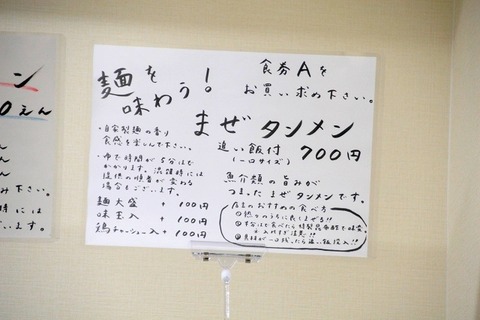 麺を
味わう!
食券Aを
お買い求め下さい。
まぜタンメン
追い飯付 700円
(一口サイズ)
・自家製麺の香り
食感を楽しんで下さい。
・ゆで時間が5分ほど
かかります。混雑時には
提供の順番が変わる
場合もございます。
麺大盛 + 100円
味玉入 + 100円
鶏チャーシュー入 + 100円
魚介類の旨みが
つまった まぜタンメンです。
店主のおすすめの食べ方
①熱々のうちに良くまぜる!!
②半分ほど食べたら特製昆布酢で味変
入れすぎ注意!!
③具材が一口残ったら追い飯投入!!
ン
0えん
ん
ん
み下さい。
時には
ています。